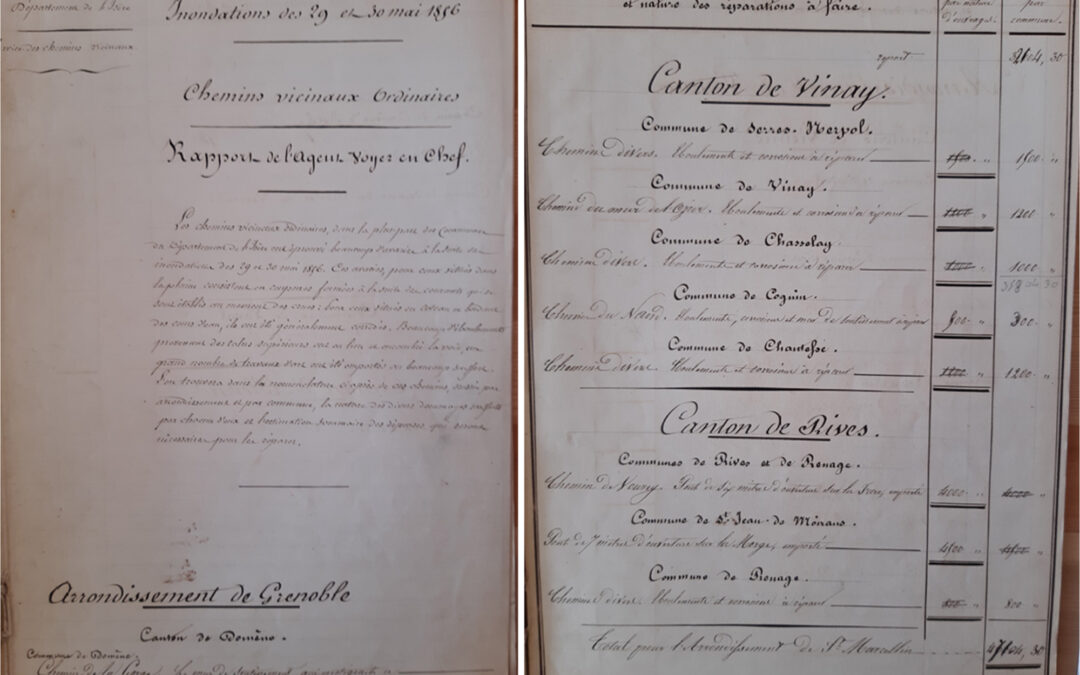 Département de l'Isère
Inondations des 29 et 30 mai 1856
Service des chemins vicinaux.
Chemins vicinaux Ordinaires
Rapport de l'Agent Voyer en Chef.
Les chemins vicinaux ordinaires, dans la plupart des Communes
du Département de l'Isère ont éprouvé beaucoup d'avaries à la suite des
inondations des 29 et 30 mai 1856. Ces avaries, pour ceux situés dans
la plaine consistent en coupures formées à la suite des courants qui se
sont établis au moment des crues: pour ceux situés en coteau ou bordant
des cours d'eau, ils ont été généralement corrodés. Beaucoup d'éboulements
provenant des talus supérieurs ont eu lieu et encombré la voie, un
grand nombre de travaux d'art ont été emportés ou beaucoup souffert.
L'on trouvera dans la nomenclature ci-après de ces chemins, par
arrondissement et par commune, la nature des divers dommages
par chacun d'eux et l'estimation sommaire des dépenses qui seront
nécessaires pour les réparer.
Arrondissement de Grenoble
Canton de Domène.
Commune de Domène.
Chemin de la Le mur de soutènement
et nature des réparations à faire.
par nature d'ouvrages.
par commune.
report 04, 30
Canton de Vinay.
Commune de Serres-Nerpol.
Chemins divers. Eboulements et corrosions à réparer
Commune de Vinay.
Chemin du Eboulements et corrosions à réparer 1200 1200 "
Commune de Chasselay.
Chemins divers. Eboulements et corrosions à réparer 1000 "
Commune de Cognin.
Chemin du Nand. Eboulements, corrosions et mur de soutènement à réparer 300 "
Commune de Chantesse.
Chemins divers. Eboulements et corrosions à réparer 1200 "
Canton de Rives.
Communes de Rives et de Renage.
Chemin de Vourey. Pont de six mètres d'ouverture sur la Fure, emporté 4000 " 4000 "
Commune de St Jean de Moirans.
Pont de 7 mètres d'ouverture sur la Morge, emporté
Commune de Renage.
Chemins divers. Eboulements et corrosions à réparer 800 " 800 "
Total pour l'Arrondissement de St Marcellin 04, 30